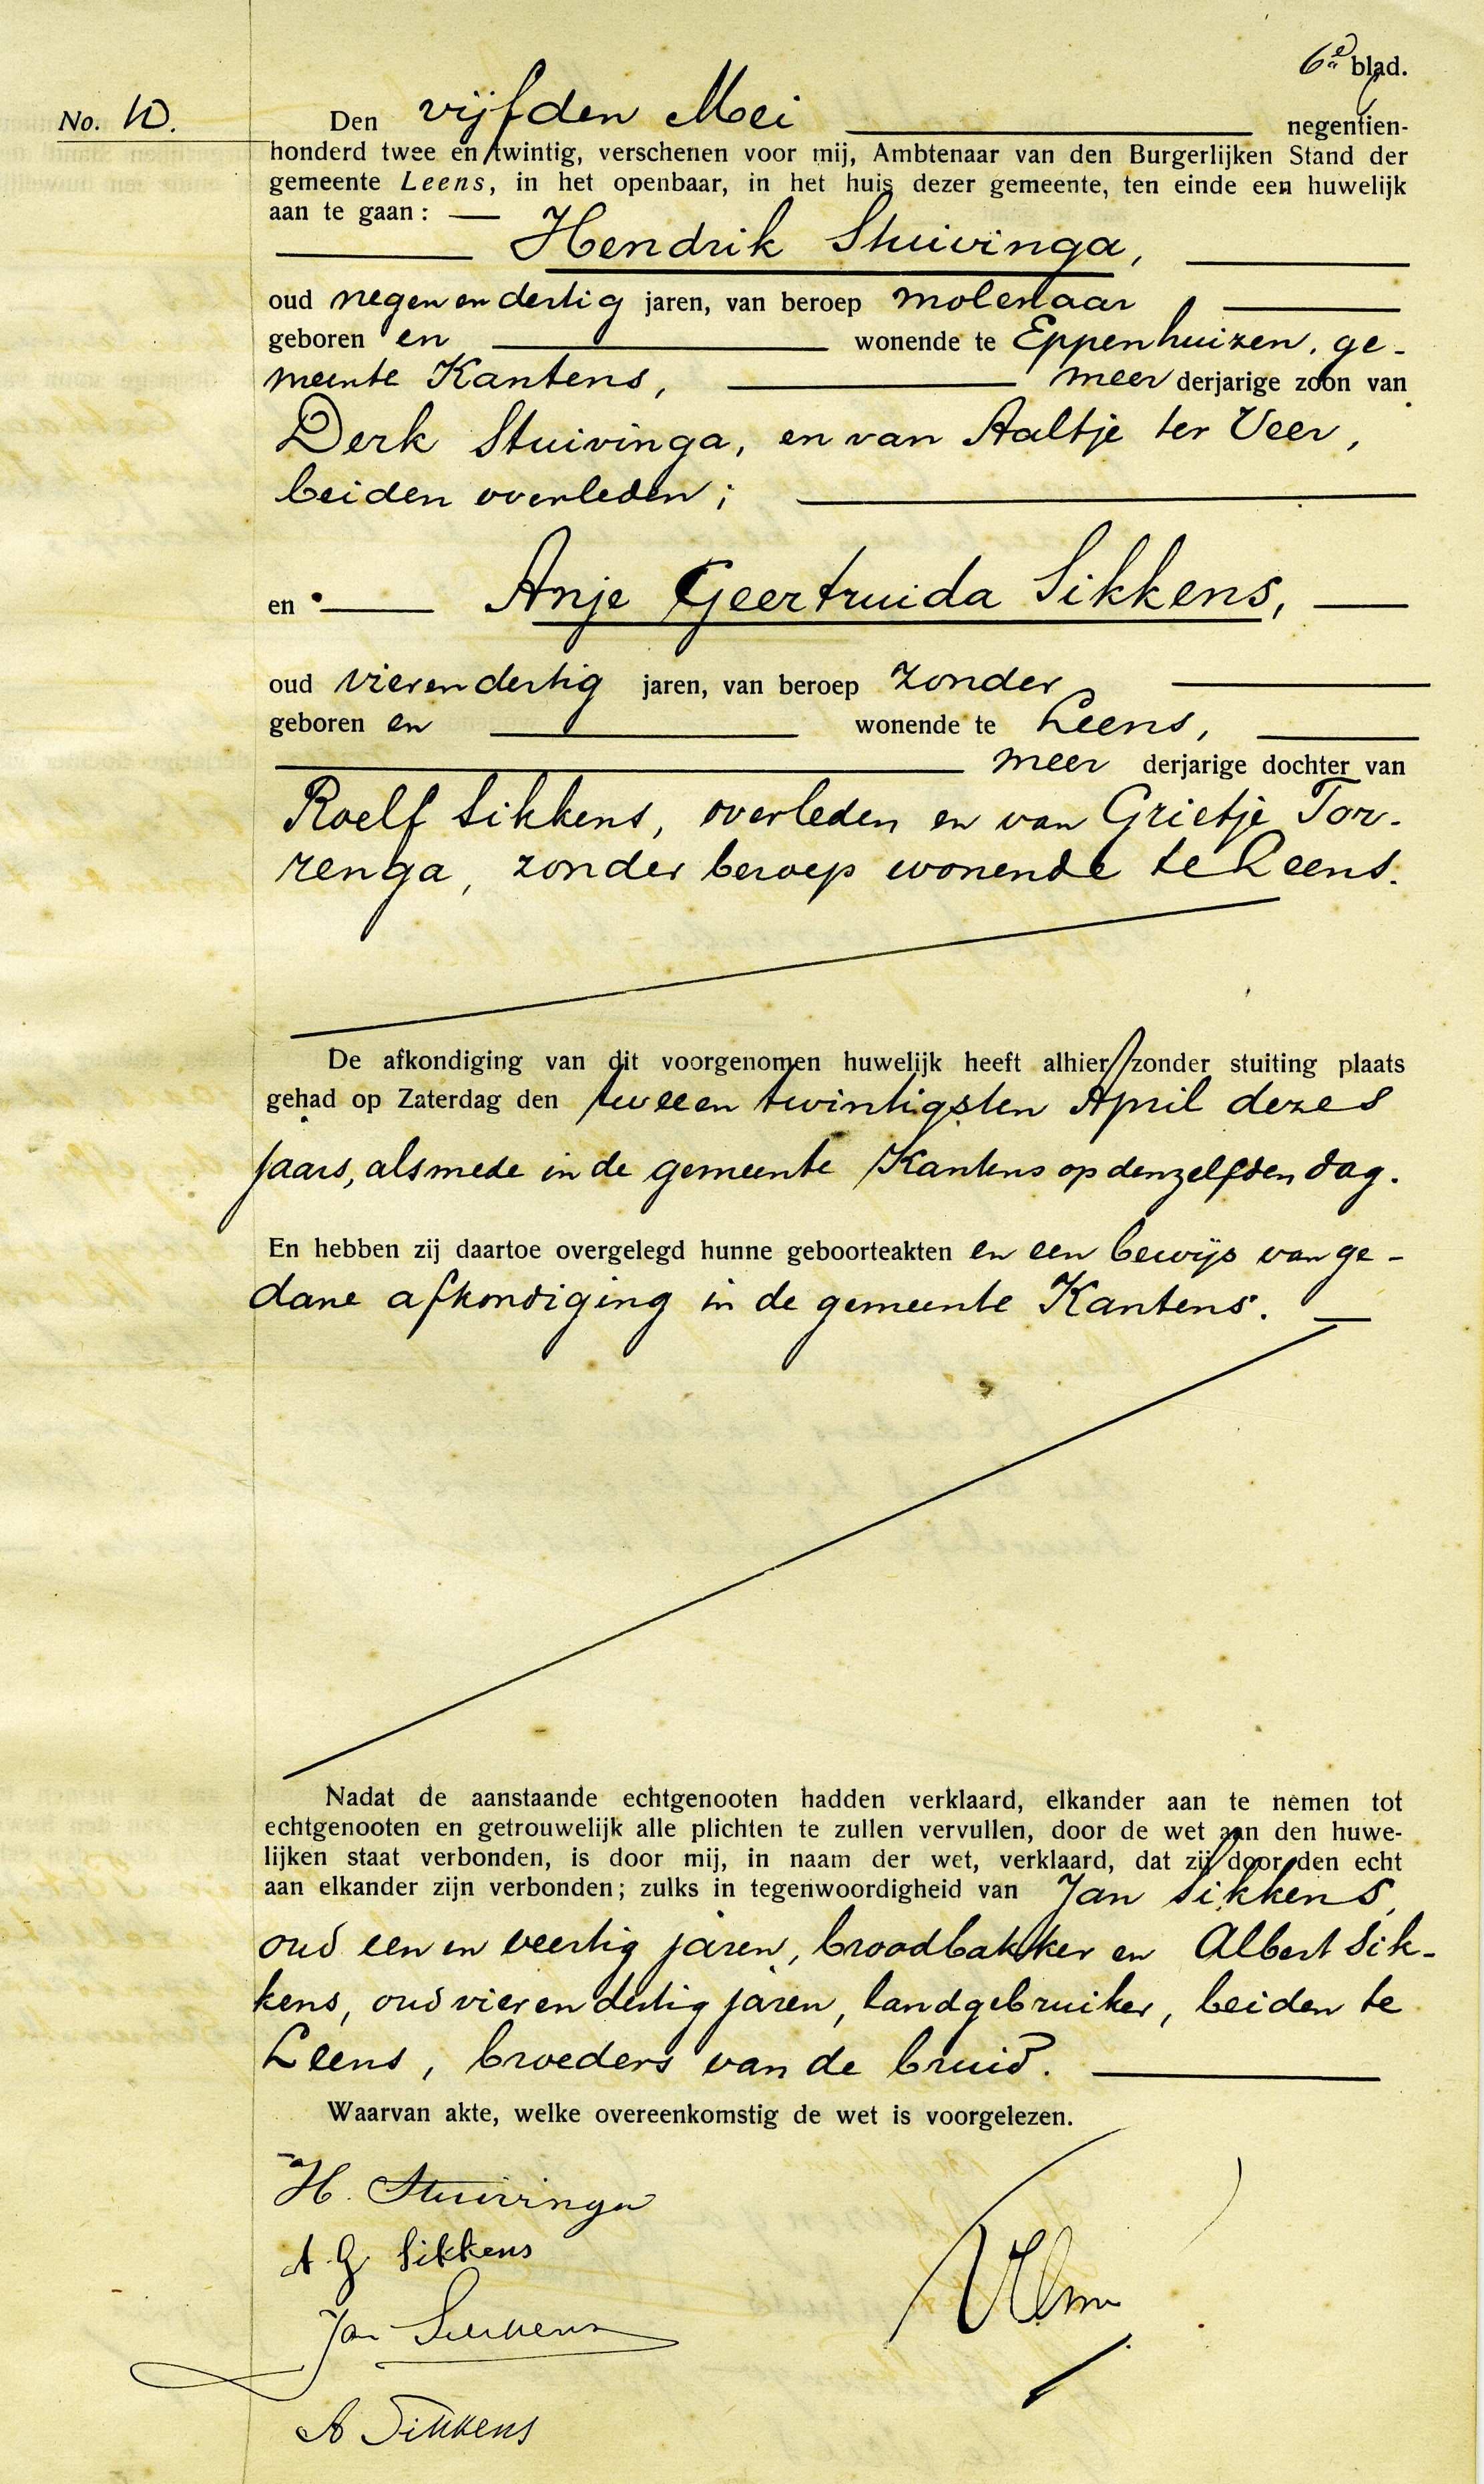 6e blad.
No. 10.
Den vijfden Mei negentien-
honderd twee en twintig, verschenen voor mij, Ambtenaar van den Burgerlijken Stand der
gemeente Leens, in het openbaar, in het huis dezer gemeente, ten einde een huwelijk
aan te gaan:
Hendrik Stuivinga,
oud negen en dertig jaren, van beroep molenaar
geboren en wonende te Eppenhuizen, ge-
meente Kantens, meer derjarige zoon van
Derk Stuivinga, en van Aaltje ter Veer,
beiden overleden;
en Anje Geertruida Sikkens,
oud vier en dertig jaren, van beroep zonder
geboren en wonende te Leens,
meer derjarige dochter van
Roelf Sikkens, overleden en van Grietje Tor-
renga, zonder beroep wonende te Leens.
De afkondiging van dit voorgenomen huwelijk heeft alhier zonder stuiting plaats
gehad op Zaterdag den tweeen twintigsten April dezes
jaars, alsmede in de gemeente Kantens op denzelfden dag.
En hebben zij daartoe overgelegd hunne geboorteakten en een bewijs van ge-
dane afkondiging in de gemeente Kantens.
Nadat de aanstaande echtgenooten hadden verklaard, elkander aan te nemen tot
echtgenooten en getrouwelijk alle plichten te zullen vervullen, door de wet aan den huwe-
lijken staat verbonden, is door mij, in naam der wet, verklaard, dat zij door den echt
aan elkander zijn verbonden; zulks in tegenwoordigheid van Jan Sikkens,
oud een en veertig jaren, broodbakker en Albert Sik-
kens, oud vier en dertig jaren, landgebruiker, beiden te
Leens, broeders van de bruid.
Waarvan akte, welke overeenkomstig de wet is voorgelezen.
H. Stuivinga
A. G. Sikkens
Jan Sikkens
A Sikkens